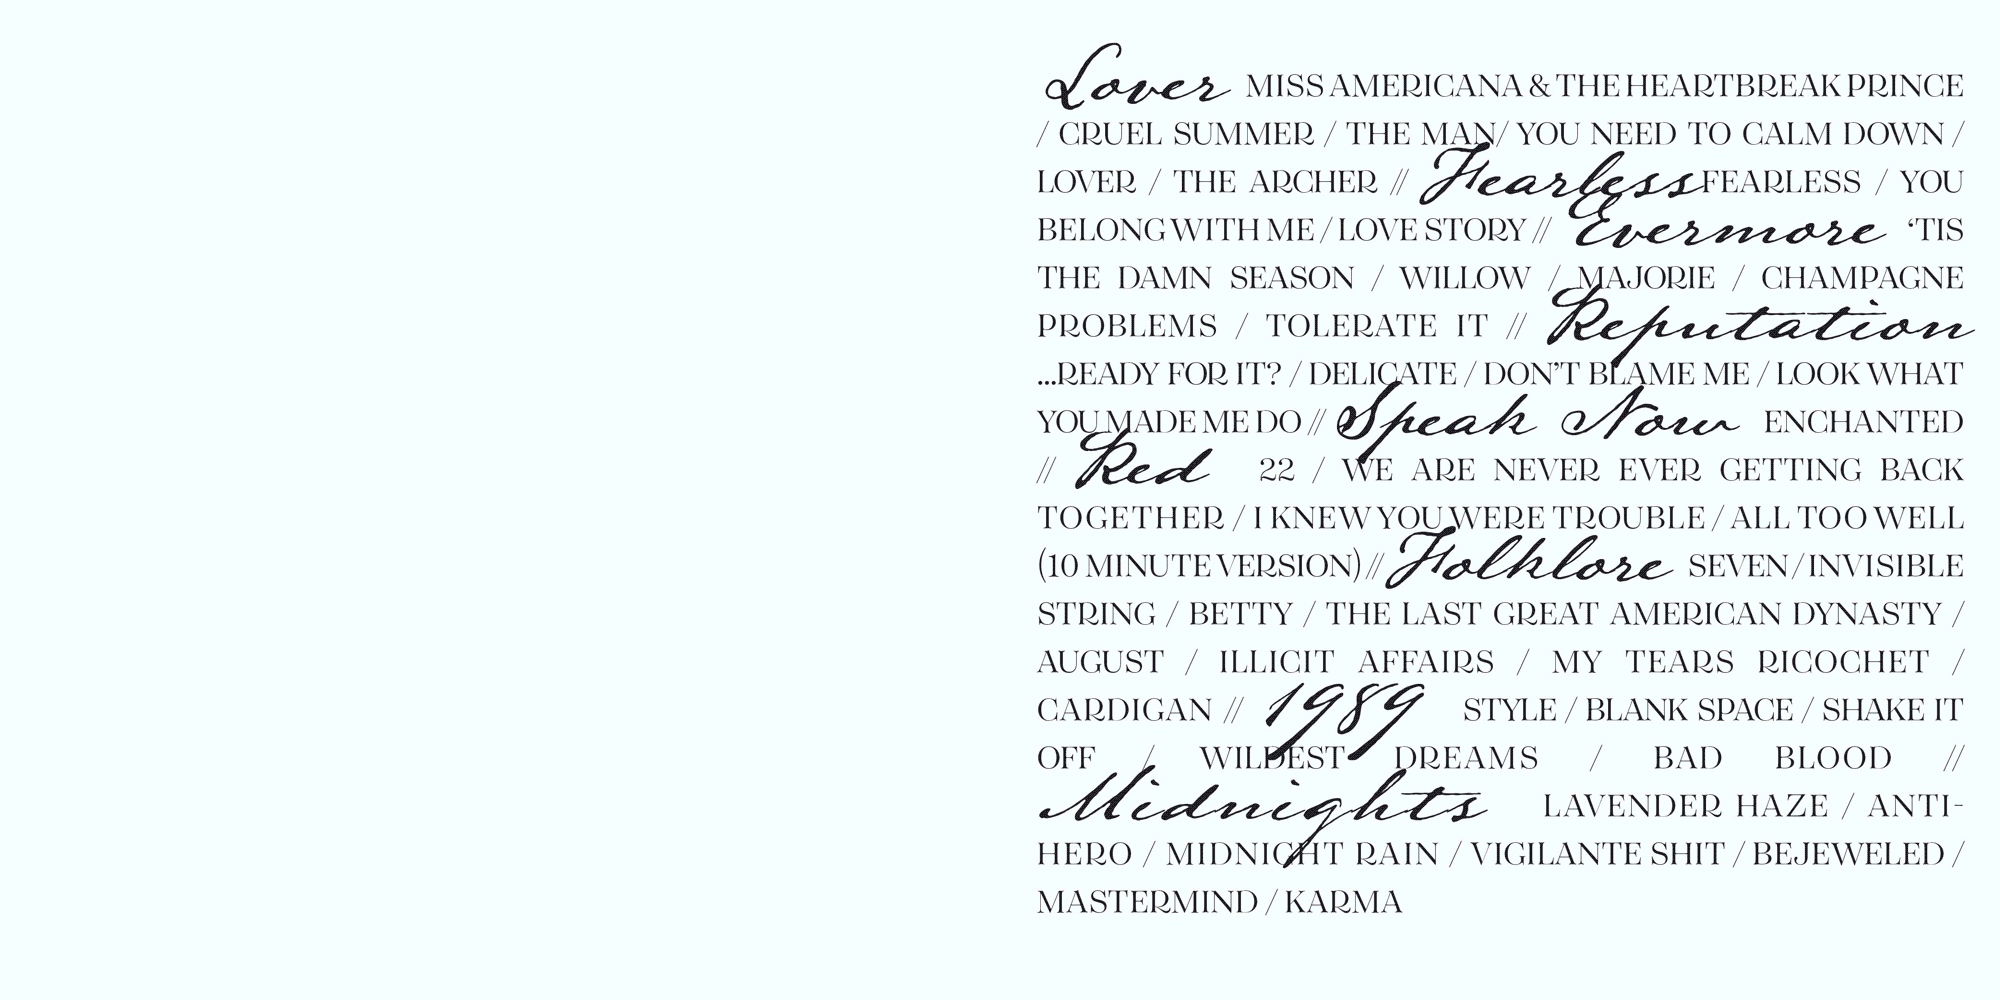 Lover MISS AMERICANA & THE HEARTBREAK PRINCE
/ CRUEL SUMMER / THE MAN/ YOU NEED TO CALM DOWN /
LOVER / THE ARCHER // Fearless FEARLESS / YOU
BELONG WITH ME / LOVE STORY // Evermore ‘TIS
THE DAMN SEASON / WILLOW / MAJORIE / CHAMPAGNE
PROBLEMS / TOLERATE IT // Reputation
...READY FOR IT? / DELICATE / DON’T BLAME ME / LOOK WHAT
YOU MADE ME DO // Speak Now ENCHANTED
// Red 22 / WE ARE NEVER EVER GETTING BACK
TOGETHER / I KNEW YOU WERE TROUBLE / ALL TOO WELL
(10 MINUTE VERSION) // Folklore SEVEN / INVISIBLE
STRING / BETTY / THE LAST GREAT AMERICAN DYNASTY /
AUGUST / ILLICIT AFFAIRS / MY TEARS RICOCHET /
CARDIGAN // 1989 STYLE / BLANK SPACE / SHAKE IT
OFF / WILDEST DREAMS / BAD BLOOD //
Midnights LAVENDER HAZE / ANTI-
HERO / MIDNIGHT RAIN / VIGILANTE SHIT / BEJEWELED /
MASTERMIND / KARMA